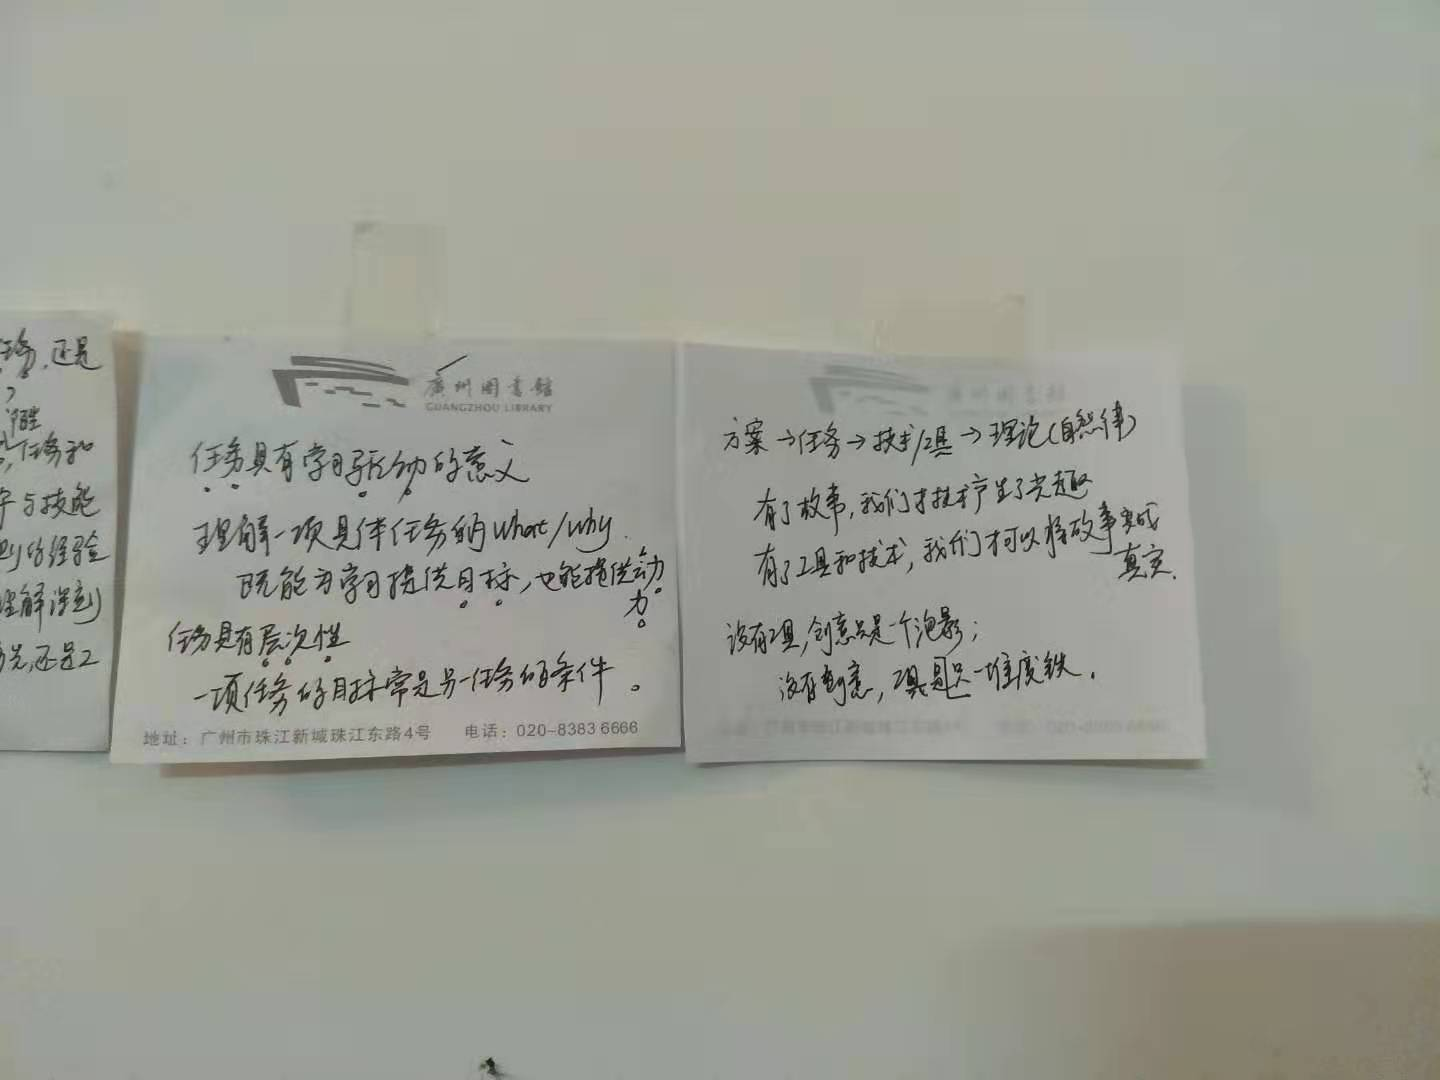 任务,还是
任务和
与技能
的经验
理解
还是工
廣州图書館
GUANGZHOU LIBRARY
任务具有学习驱动的意义
理解一项具体任务的what/why.
既能为学习提供目标,也能提供动
力。
任务具有层次性
一项任务的目标常是另一任务的条件。
地址:广州市珠江新城珠江东路4号 电话:020-8383 6666
方案→任务→技术/工具→理论(自然律)
有了故事,我们才对技术产生了兴趣
有了工具和技术,我们才可以将故事变成
真实.
没有工具,创意只是一个泡影;
没有创意,工具只是一堆废铁.